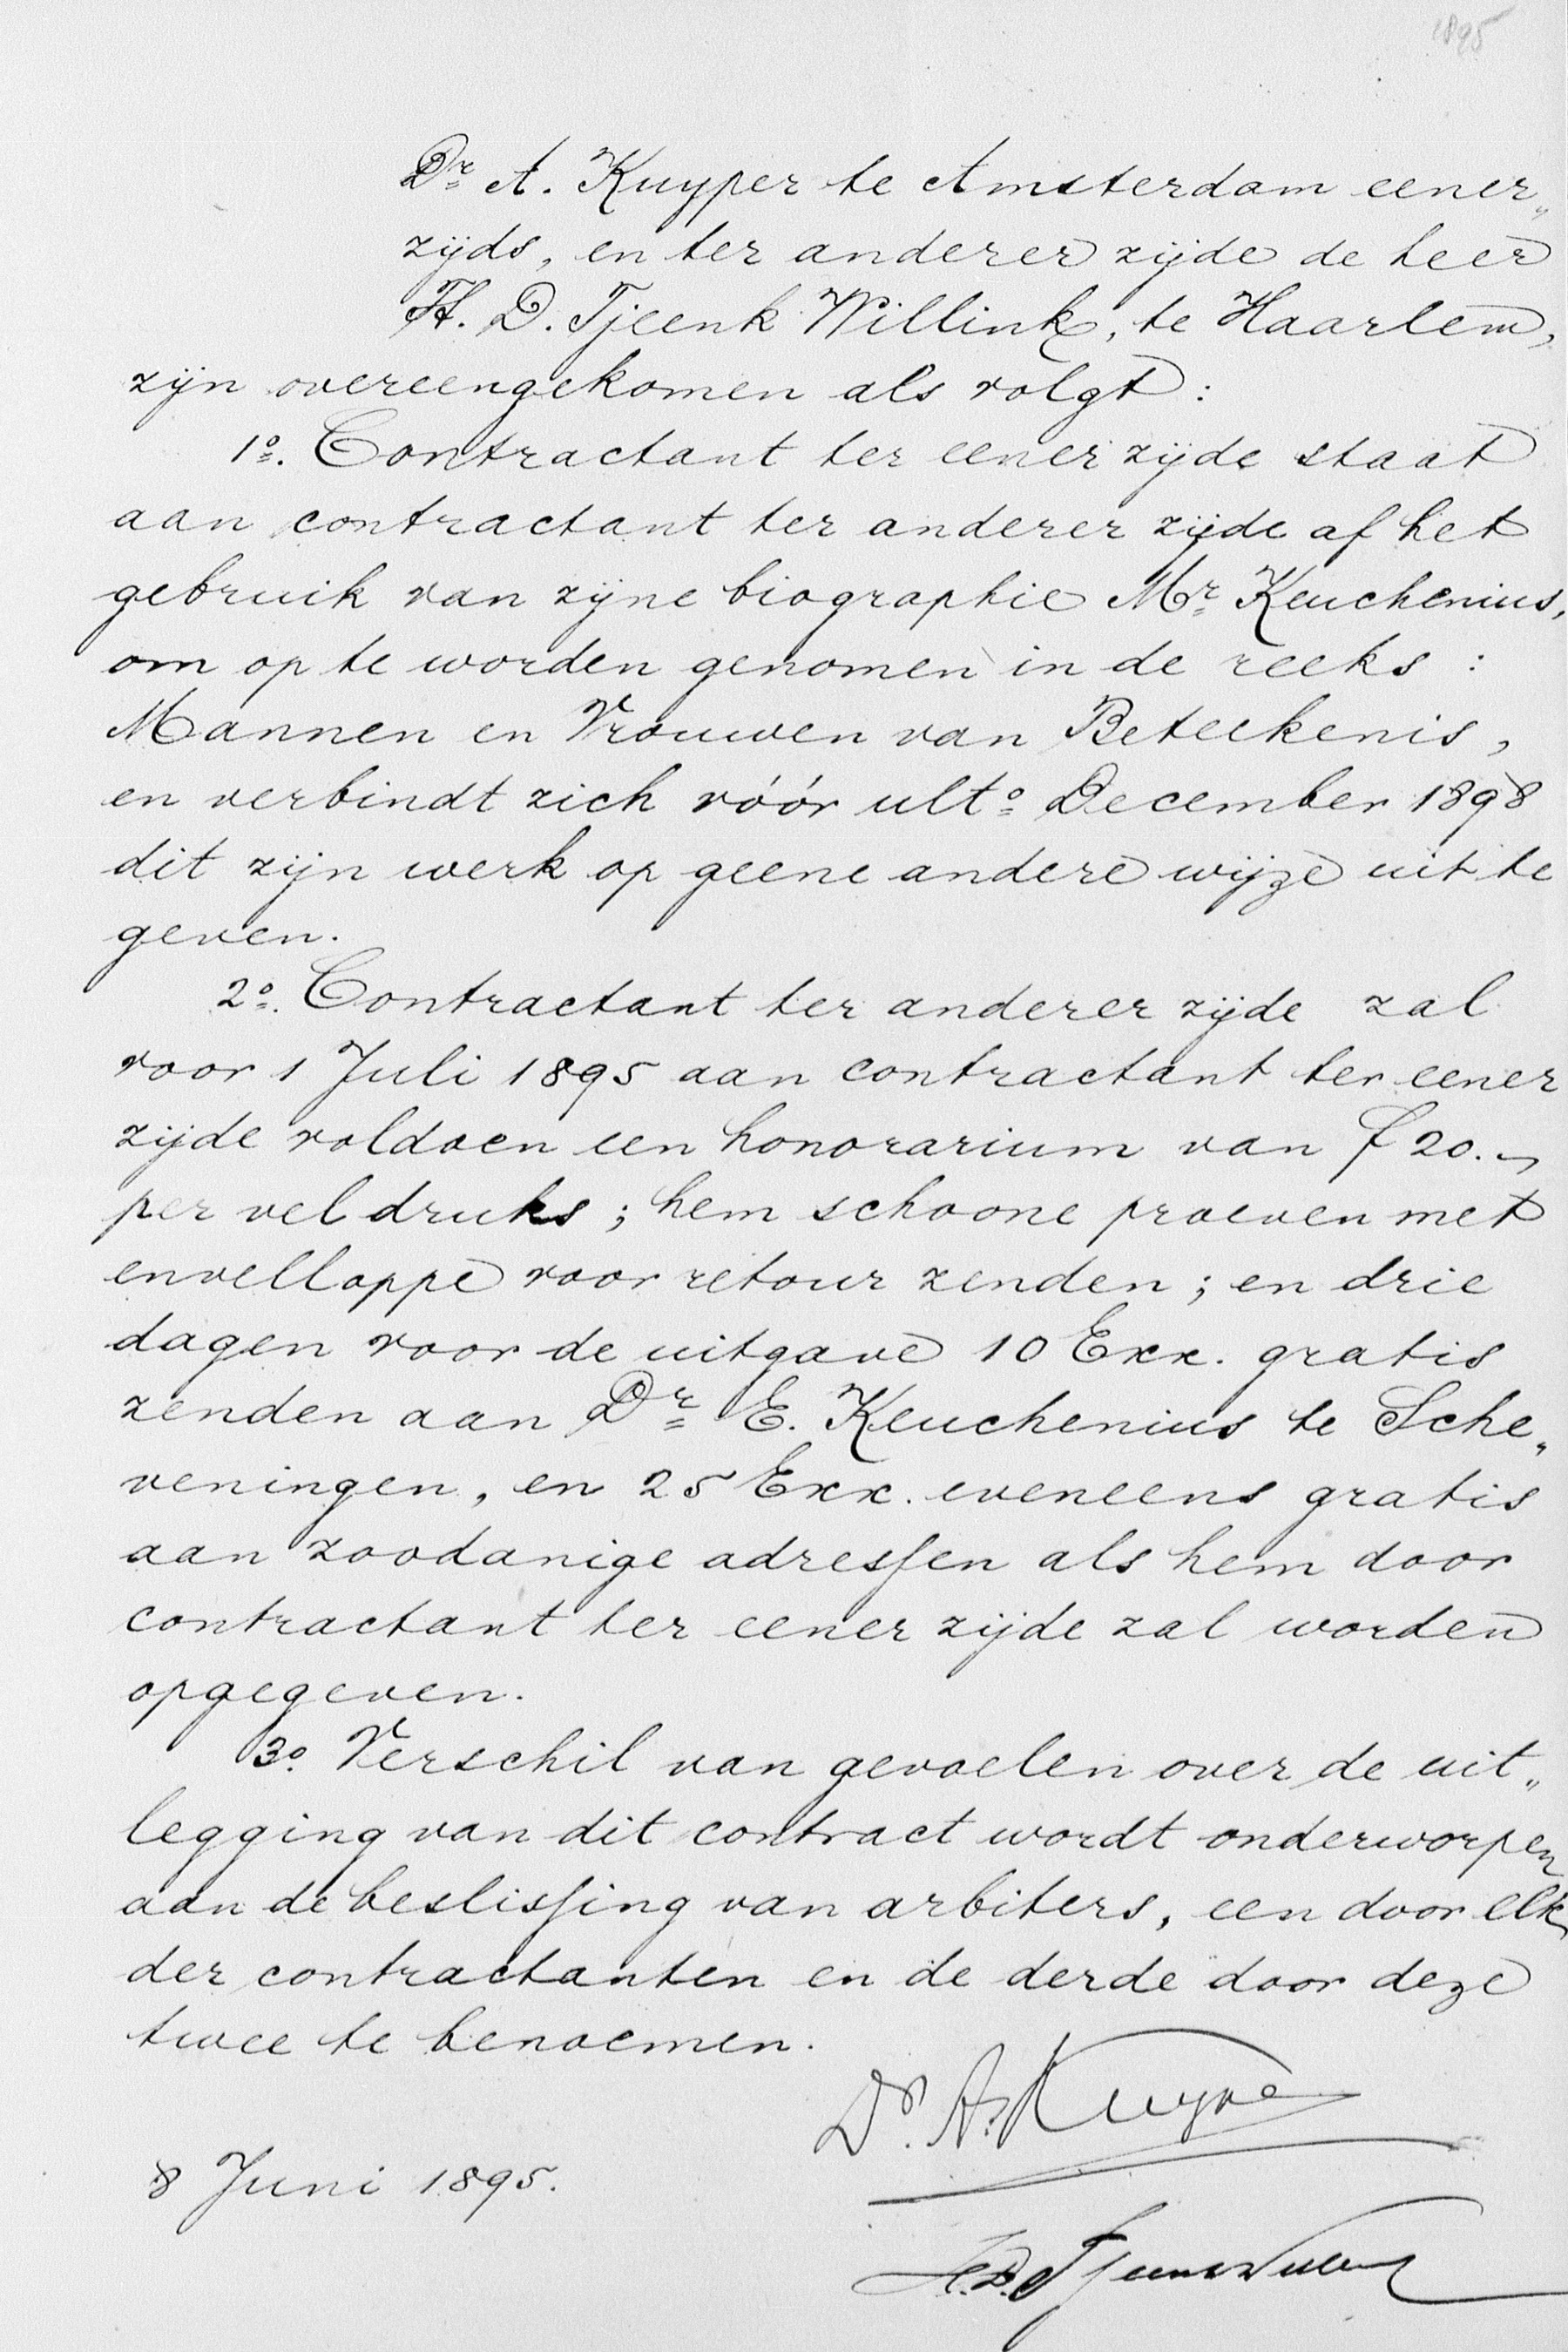 1895
Dr. A. Kuyper te Amsterdam eener„
zijds, en ter anderer zijde de heer
H. D. Tjeenk Willink, te Haarlem,
zijn overeengekomen als volgt:
1o. Contractant ter eener zijde staat
aan contractant ter anderer zijde af het
gebruik van zijne biographie Mr. Keuchenius,
om op te worden genomen in de reeks:
Mannen en Vrouwen van Beteekenis,
en verbindt zich vóór ulto. December 1898
dit zijn werk op geene andere wijze uit te
geven.
2o. Contractant ter anderer zijde zal
voor 1 Juli 1895 aan contractant ter eener
zijde voldoen een honorarium van f 20.-
per vel druks; hem schoone proeven met
envelloppe voor retour zenden; en drie
dagen voor de uitgave 10 Exx. gratis
zenden aan Dr. E. Keuchenius te Sche„
veningen, en 25 Exx. eveneens gratis
aan zoodanige adressen als hem door
contractant ter eener zijde zal worden
opgegeven.
3o. Verschil van gevoelen over de uit„
legging van dit contract wordt onderworpen
aan de beslissing van arbiters, een door elk
der contractanten en de derde door deze
twee te benoemen.
Dr. A. Kuyper
8 Juni 1895.
H.D. Tjeenk Willink